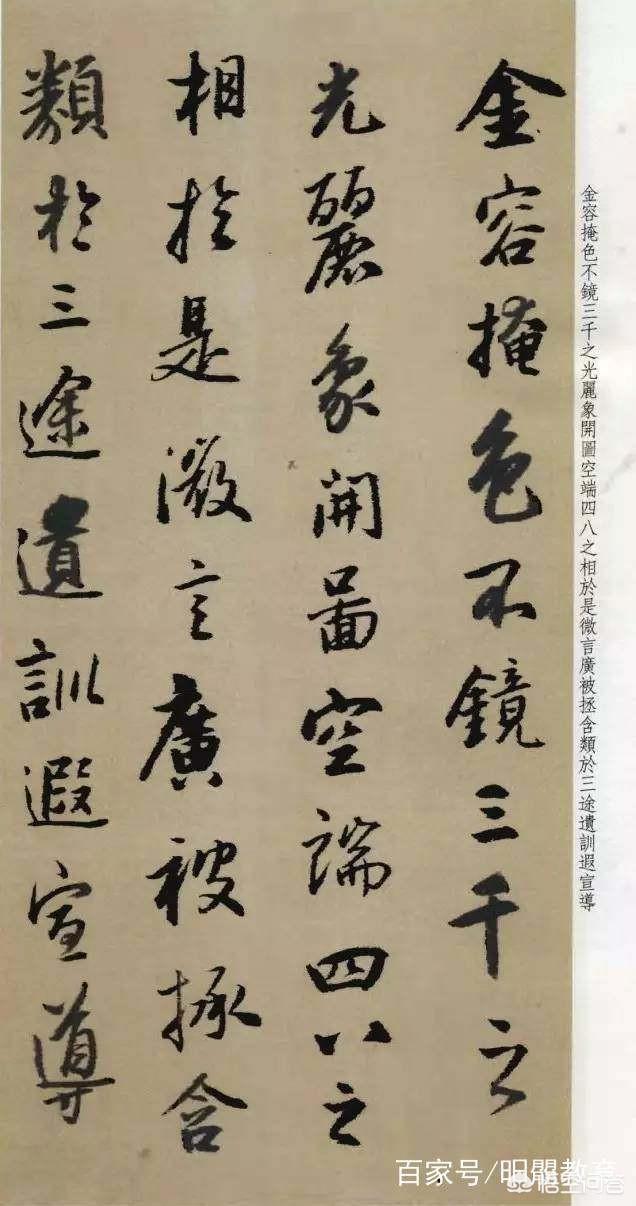 金容掩色不鏡三千之
光麗象開圖空端四八之
相於是微言廣被拯含
類於三途遺訓遐宣導
金容掩色不鏡三千之光麗象開圖空端四八之相於是微言廣被拯含類於三途遺訓遐宣導
百家号/明閣教育
悟空问答